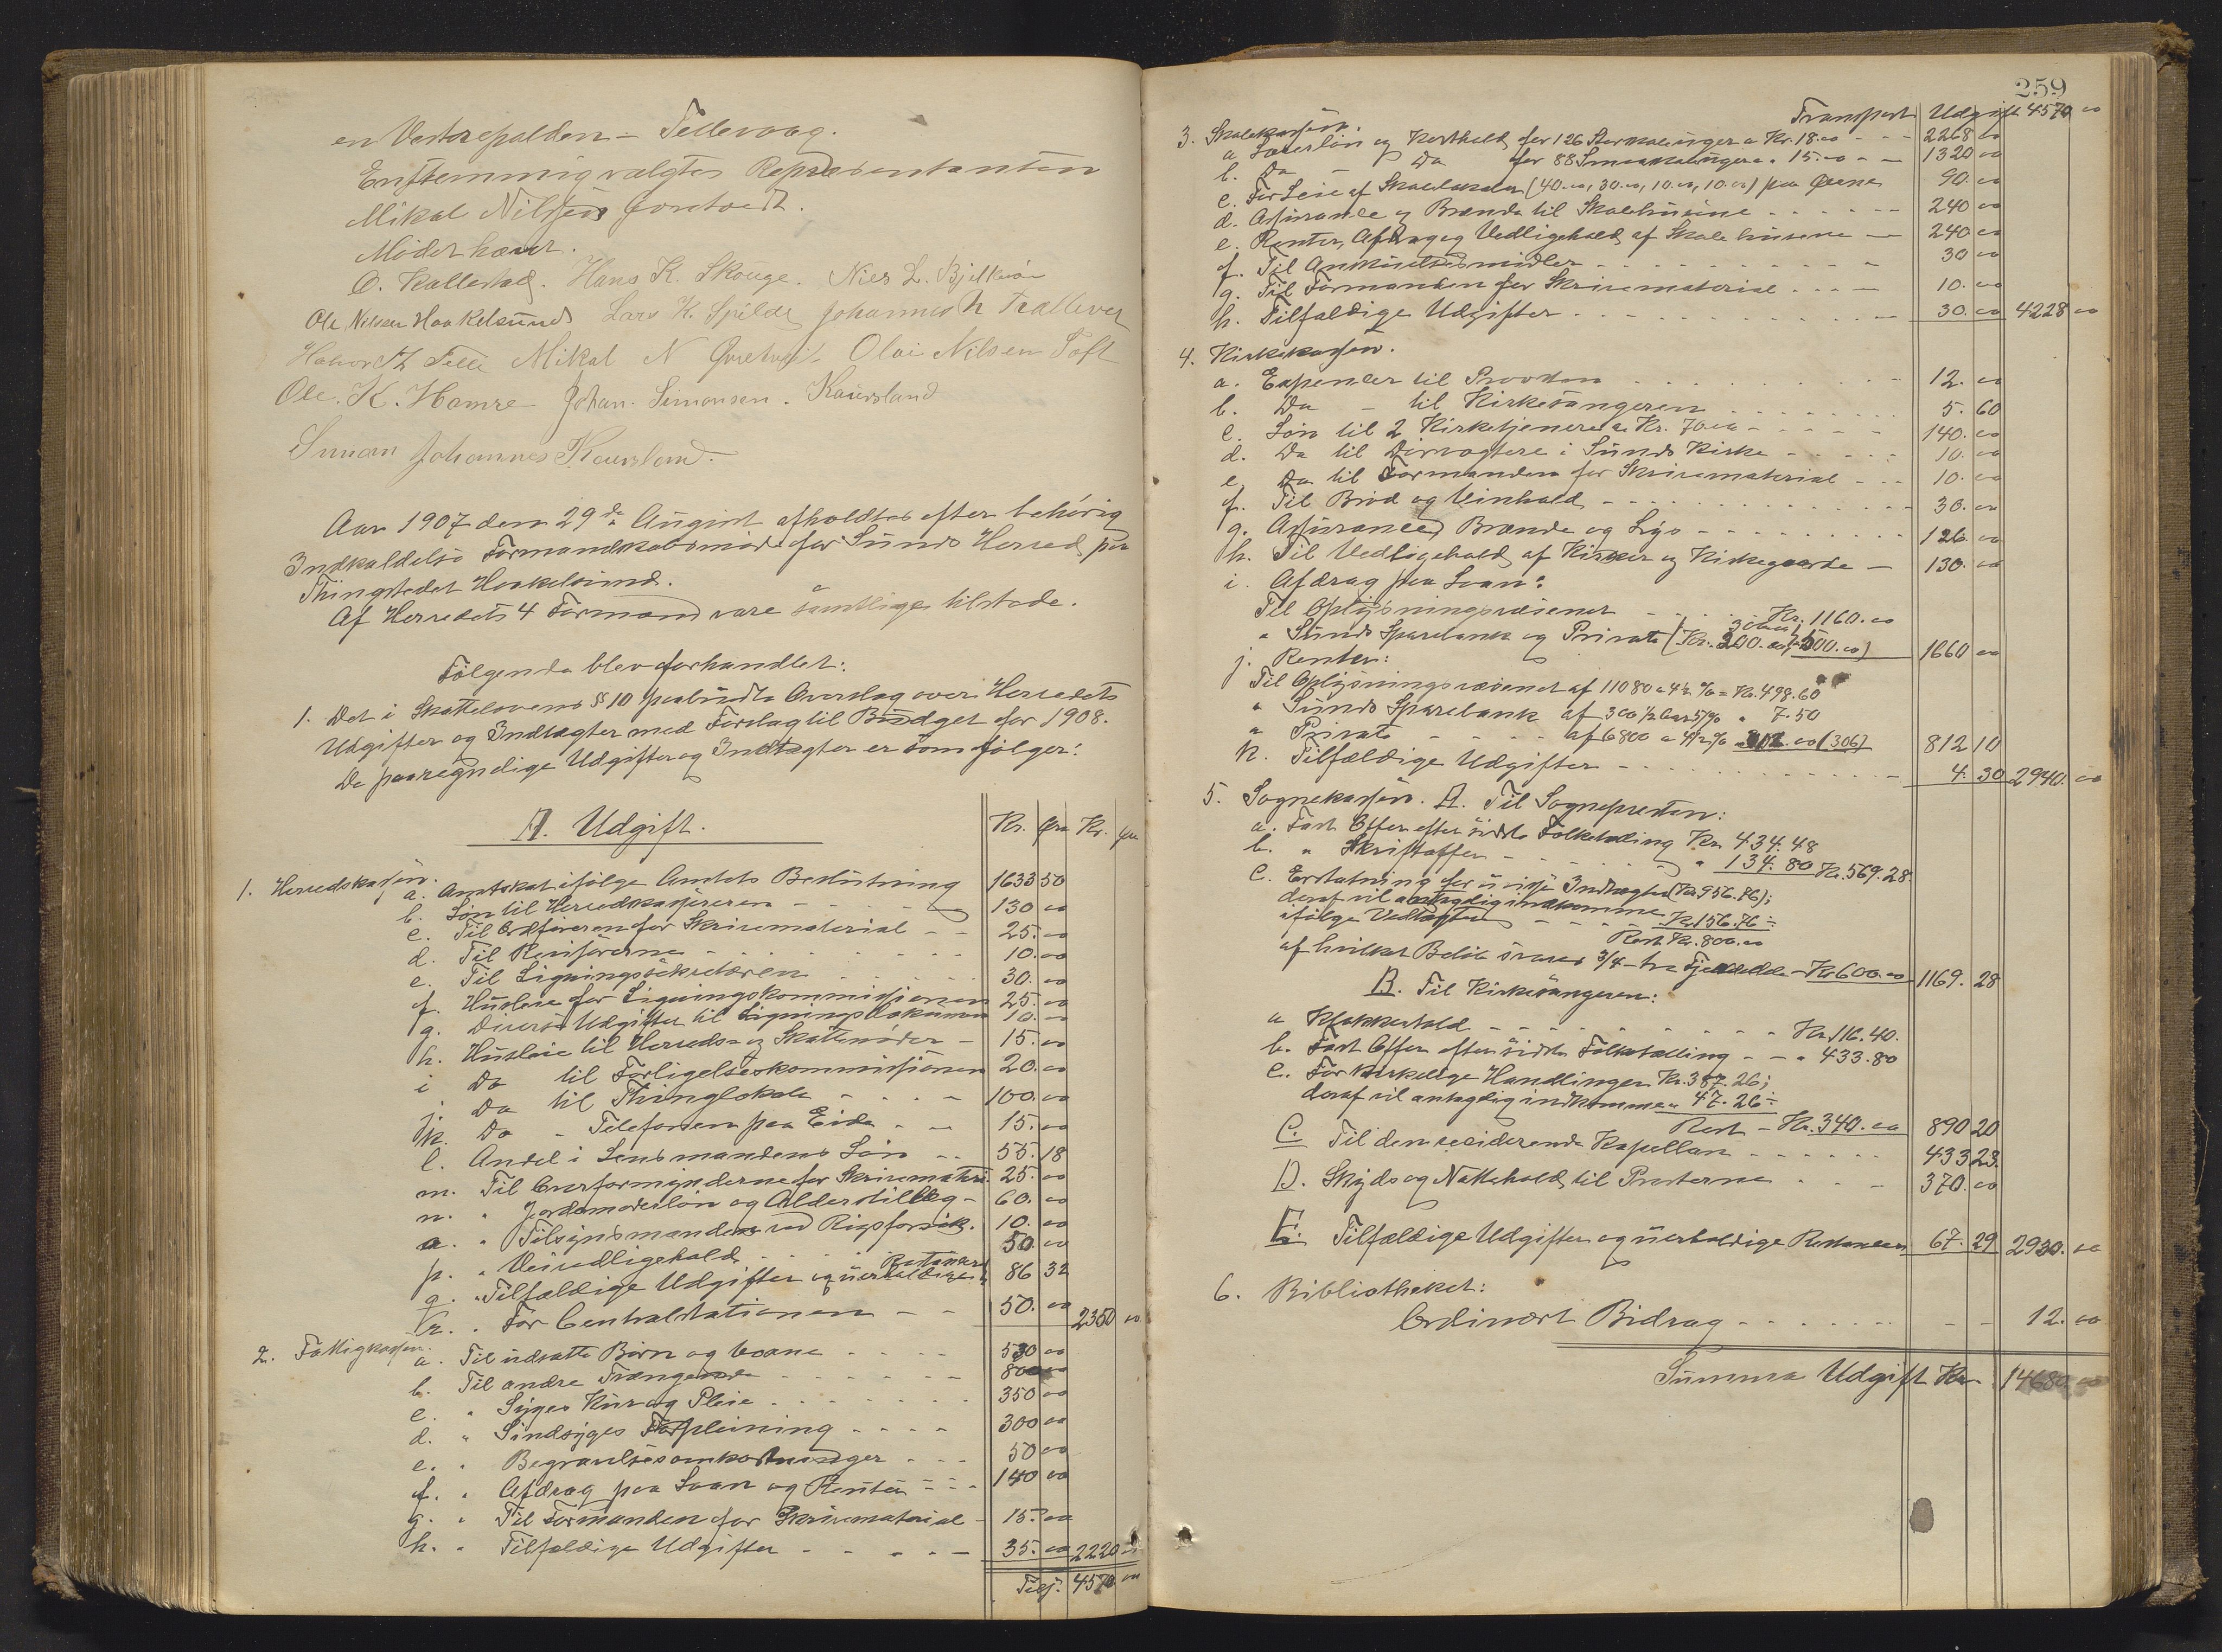 en Vestrepolden - Tellevaag.
Enstemmig valgtes Repræsentanten
Mikal Nilssen Goretvedt.
Mødet hævet.
O. Kallestad. Hans K. Skouge. Niels L. Bjelkerøen
Ole Nilssen Haakelsund Lars K. Spilde Johannes N Trællevik
Halvor Telle Mikal N Goretvedt Olai Nilsen Toft
Ole. K. Hamre Johan. Simonsen. Kausland
Simon Johannes Kausland.
Aar 1907 den 29de August afholdtes efter behørig
Indkaldelse Formandskabsmøde for Sunds Herred paa
Thingstedet Haakelsund.
Af Herredets 4 Formænd vare samtlige tilstede.
Følgende blev forhandlet:
1. Det i Skattelovens § 10 paabudte Overslag over Herredets
Udgifter og Indtægter med Forslag til Budget for 1908.
De paaregnelige Udgifter og Indtægter er som følger:
A. Udgift. Kr. Øre Kr. Øre
1. Herredskassen.
a. Amtskat ifølge Amtets Beslutning 1633 50
b. Løn til Herredskassereren - - - 130 00
c. Til Ordføreren for Skrivematerial - - 25. 00
d. Til Revisorerne - - - 10. 00
e. Til Ligningssekretæren - - - 30. 00
f. Husleie for Ligningskommissionen 25. 00
g. Diverse Udgifter til Ligningsvæsenen 10. 00
h. Husleie til Herreds- og Skattemøder - 15. 00
i Do til Forligelseskommissionen 20. 00
j. Do til Thinglokale - - - 100. 00
k. Do - Telefonen paa Eide - - 15. 00
l. Andel i Lensmandens Løn - - 55. 18
m. Til Overformynderne for Skrivemateri. 25. 00
n. " Jordemorløn og Alderstillæg - 60. 00
o. " Tilsynsmanden ved Rigsforsik. 10. 00
p. " Veivedligehold - - - 50 00
q. " Tilfældige Udgifter og uerholdelige Restancer 86 32
r. " For Centralstationen - - 50. 00 2350 00
2. Fattigkassen.
a. Til udsatte Børn og Voxne - - - 530 00
b. Til andre Trængende - - - 800 00
c. " Syges Kur og Pleie - - - 350 00
d. " Sindsyges Forpleining - - - 300 00
e. " Begravelsesomkostninger - - - 50 00
f. " Afdrag paa Laan og Renter - - - 140 00
g. " Til Formanden for Skrivematerial - 15. 00
h. " Tilfældige Udgifter - - - 35. 00 2220 00
Tilsj. 4570 00
259
Transport Udgift 4570 00
3. Skolekassen.
a Lærerløn og Kosthold for 126 Storskoleuger a Kr. 18.00 - - - 2268 00
b. Do - Do for 88 Smaaskoleuger a " 15.00 - - 1320 00
c. For Leie af Skolelokaler (40.00, 30.00, 10.00, 10.00) paa Øerne 90. 00
d. Assurance og Brænde til Skolehusene - - - 240 00
e. Renter, Afdrag og Vedligehold af Skolehusene - 240 00
f. Til Anskuelsesmidler - - - 30 00
g. Til Formanden for Skrivematerial - - - 10. 00
h. Tilfældige Udgifter - - - 30. 00 4228 00
4. Kirkekassen.
a. Expencer til Provsten - - - 12. 00
b. Do - til Kirkesangeren - - - 5. 60
c. Løn til 2 Kirketjenere a Kr. 70.00 - - - 140. 00
d. Do til Dørvogtere i Sunds Kirke - - - 10. 00
e. Do til Formanden for Skrivematerial - - - 10. 00
f. Til Brød og Vinhold - - - 30. 00
g. Assurance, Brænde og Lys - - - 126 00
h. Til Vedligehold af Kirker og Kirkegaarde - 130. 00
i. Afdrag paa Laan:
Til Oplysningsvæsenet - - - Kr. 1160.00
" Sunds Sparebank og Private (Kr. 300.00 200.00) 500.00) 1660 00
j. Renter:
Til Oplysningsvæsenet af 11080 a 4½ % = Kr. 498.60
" Sunds Sparebank af 300 ½ Aar 5% " 7.50
" Private - - - af 6800 a 4½ % 306.00 (306) 812 10
k. Tilfældige Udgifter - - - 4. 30 2940. 00
5. Sognekassen. A. Til Sognepresten:
a. Fast Offer efter sidste Folketælling Kr. 434.48
b. " Skriftoffer - - - " 134.80 Kr. 569.28.
c. Erstatning for uvisse Indtægter (Kr. 956.76);
deraf vil antagelig indkomme
ifølge Vedtægten - - - Kr. 156.76 ÷
Rest Kr. 800.00
af hvilket Beløb svares 3/4 - tre Fjerdedele - Kr. 600.00 1169. 28
B. Til Kirkesangeren:
a Klokkertold - - - Kr. 116.40.
b. Fast Offer efter sidste Folketælling - - " 433.80
c. For kirkelige Handlinger Kr. 387.26;
deraf vil antagelig indkomme " 47.26 ÷
Rest - Kr. 340.00 890 20
C. Til den residerende Kapellan - - - 433 23.
D. Skyds og Nattehold til Presterne - - - 370. 00
E. Tilfældige Udgifter og uerholdelige Restancer 67. 29 2930. 00
6. Bibliotheket:
Ordinært Bidrag - - - 12. 00
Summa Udgift Kr. 14680 00